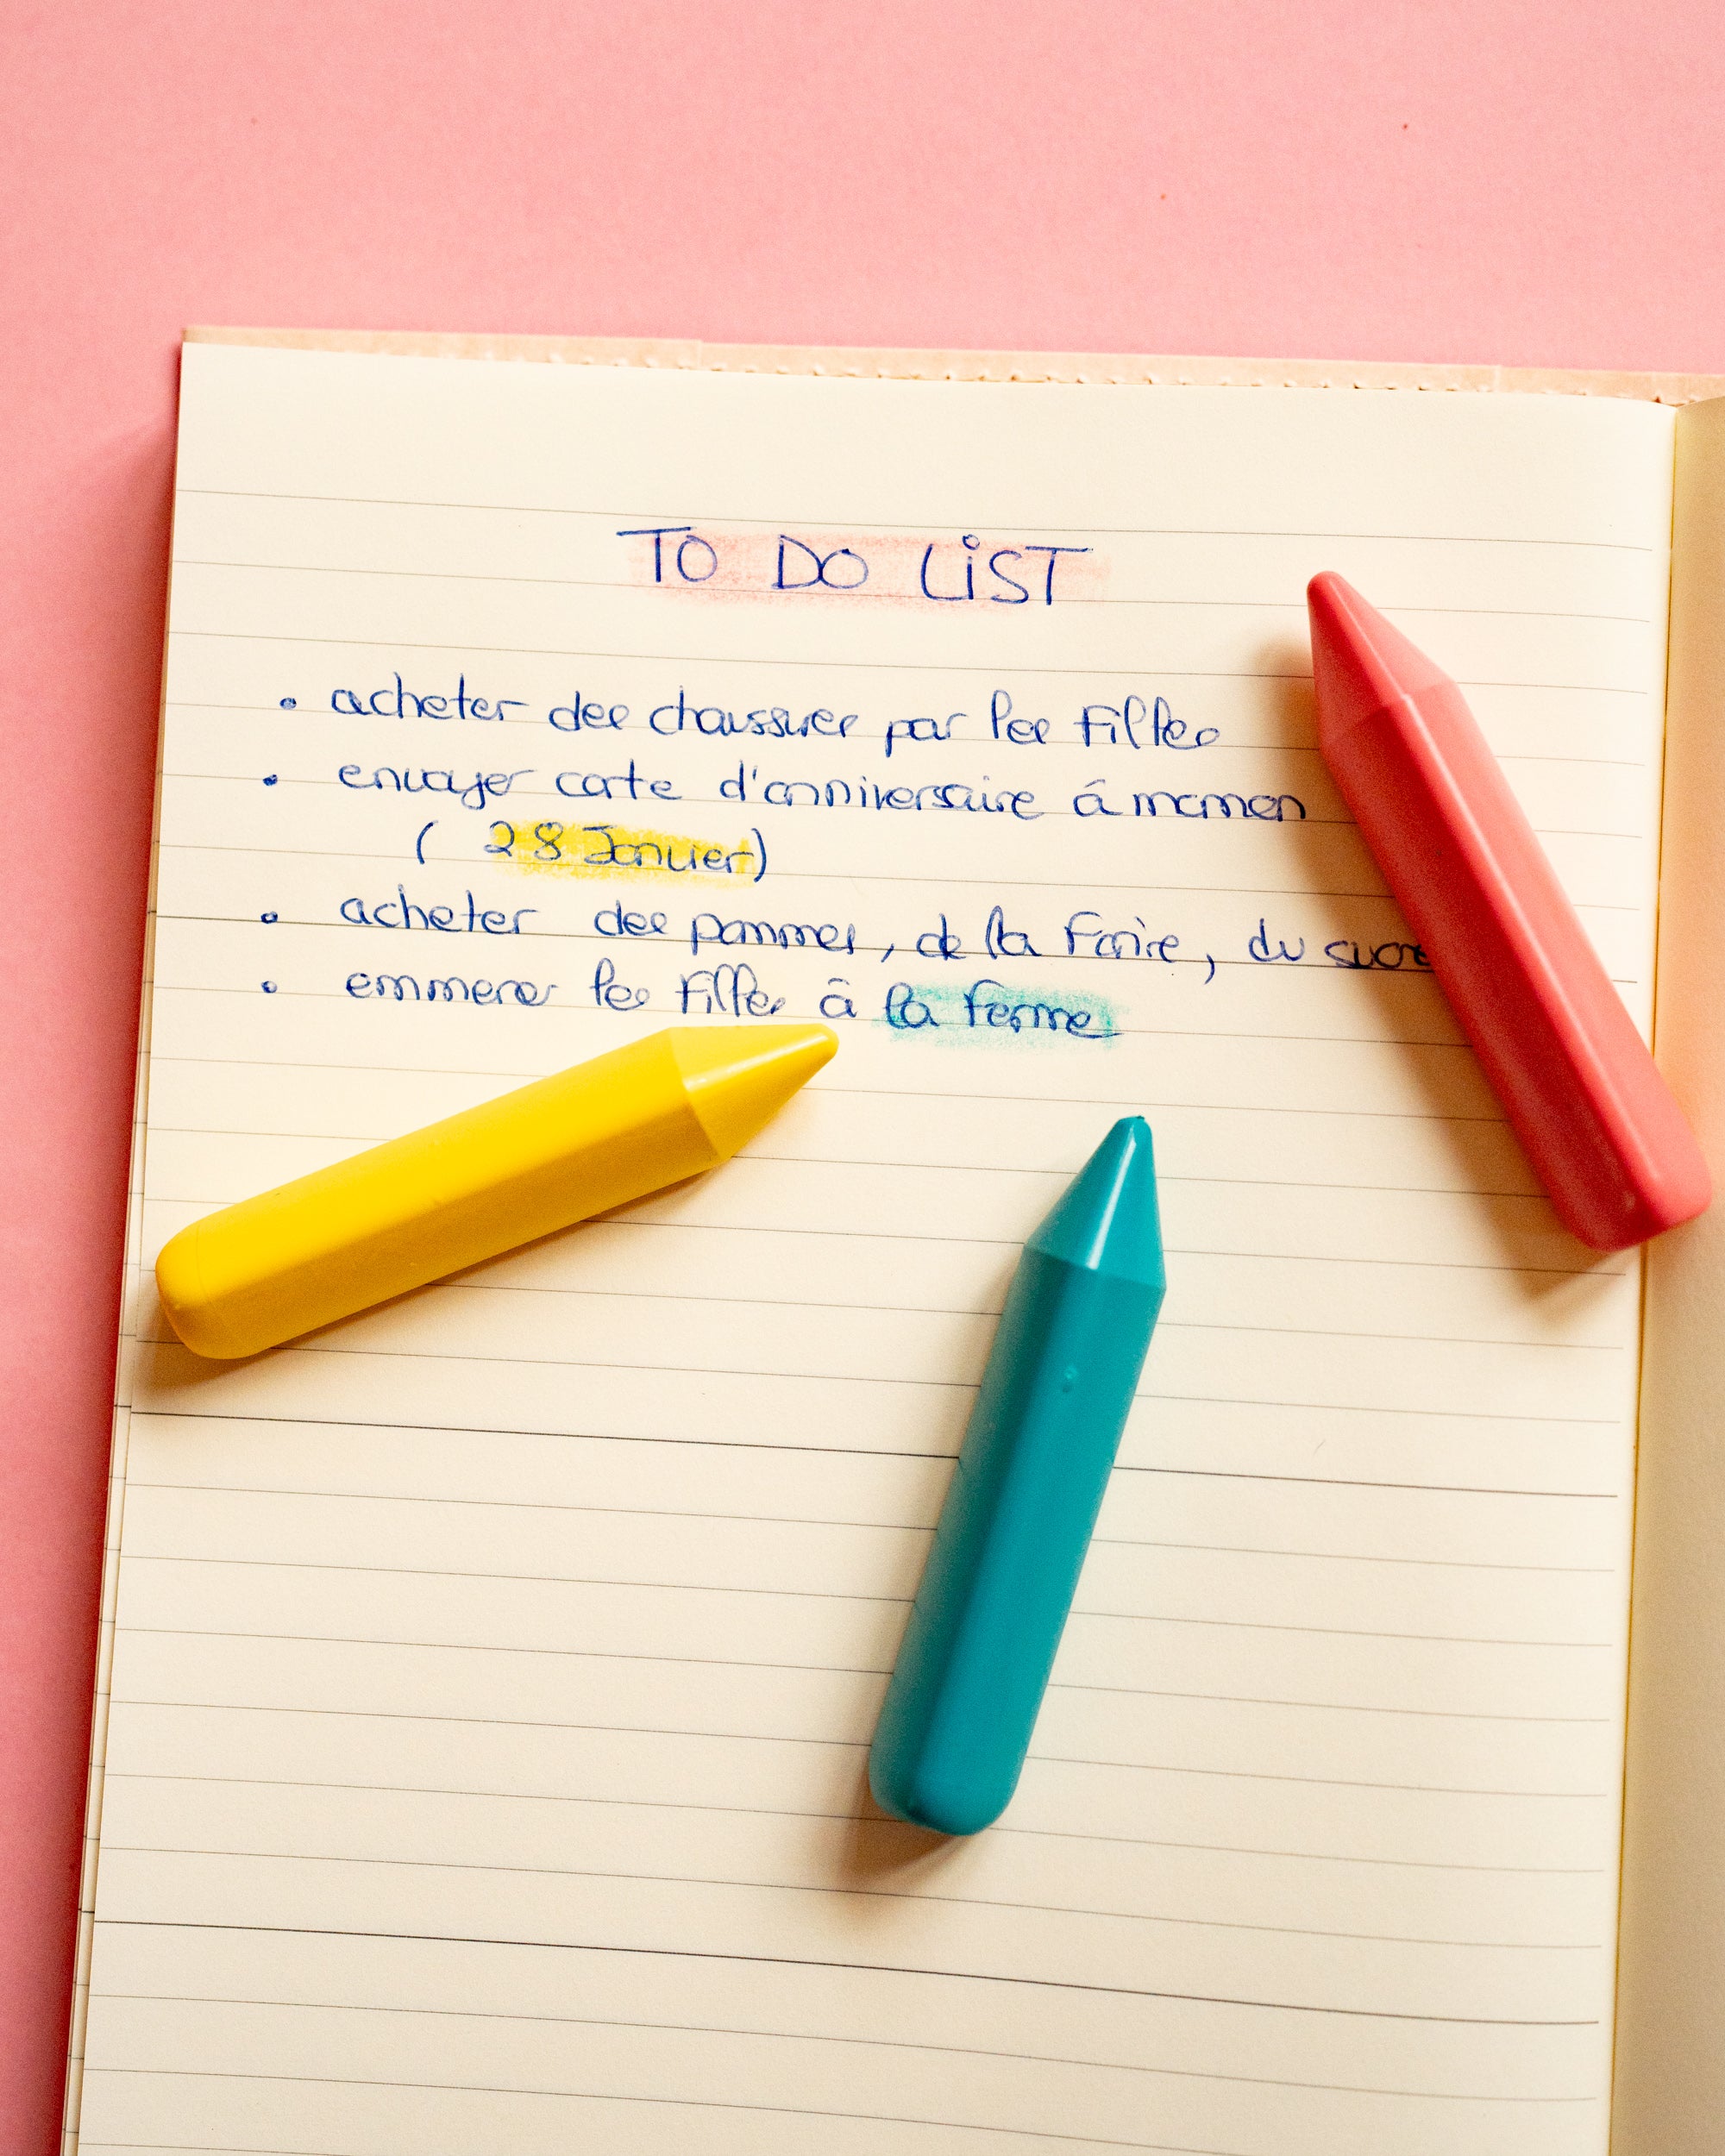 TO DO LiST
• acheter des chaussures par les filles
• envoyer carte d'anniversaire á maman
( 28 Janvier)
• acheter des pommes, de la farine, du sucre
• emmener les filles à la ferme